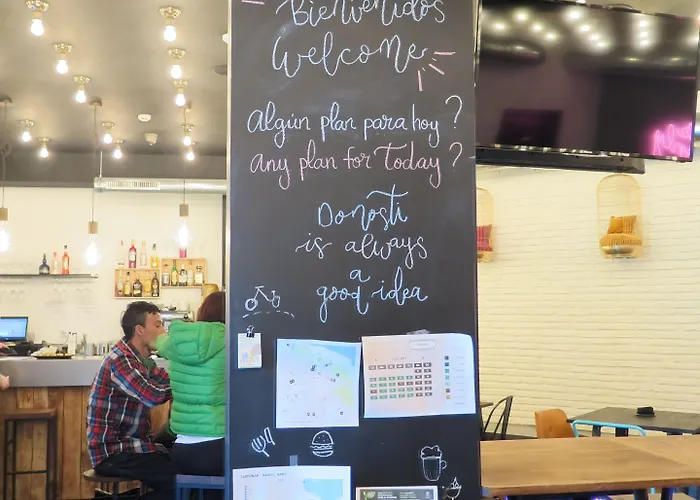 Bienvenidos
Welcome
Algún plan para hoy?
Any plan for Today?
Donosti
is always
a
good idea